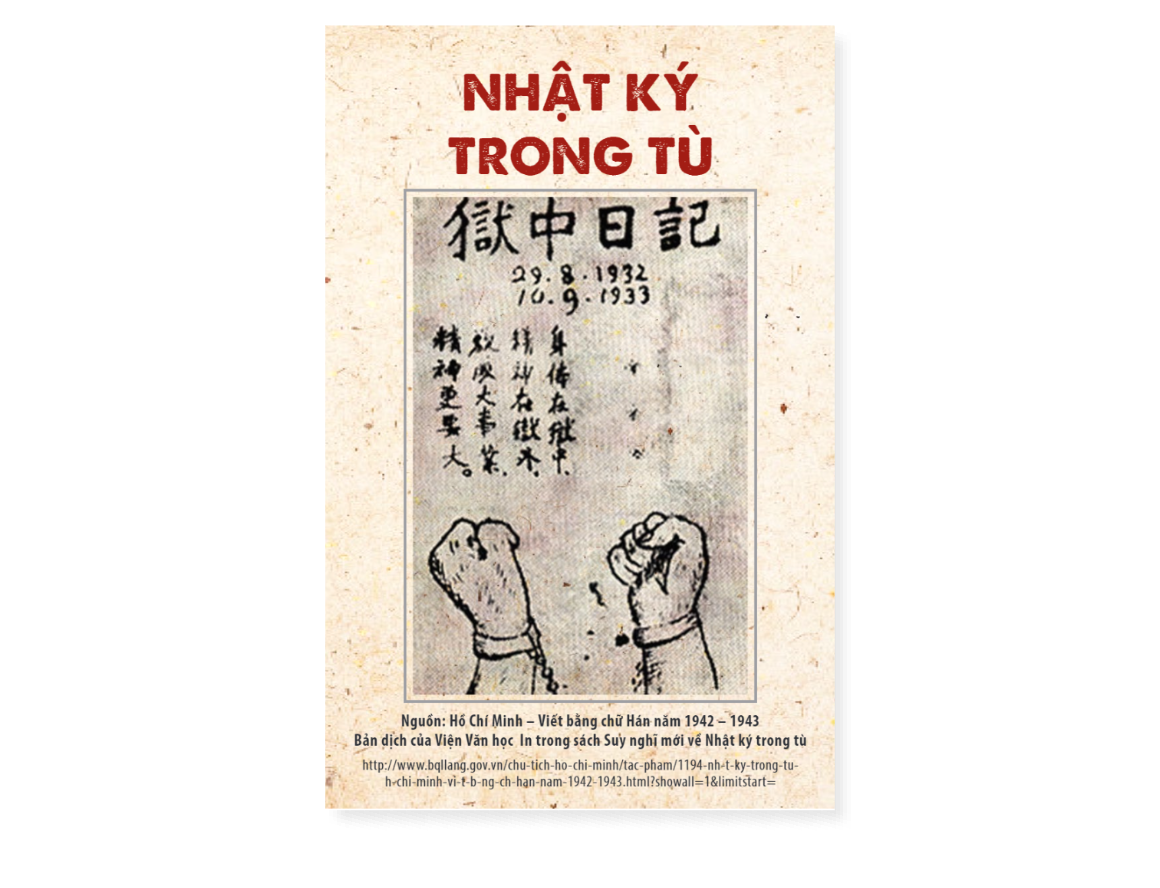 NHẬT KÝ
TRONG TÙ
獄中日記
29.8.1932
10.9.1933
身体在獄中、
精神在獄外、
欲成大事業、
精神更要大。
Nguồn: Hồ Chí Minh – Viết bằng chữ Hán năm 1942 – 1943
Bản dịch của Viện Văn học In trong sách Suy nghĩ mới về Nhật ký trong tù
http://www.bqllang.gov.vn/chu-tich-ho-chi-minh/tac-pham/1194-nh-t-ky-trong-tu-
h-chi-minh-vi-t-b-ng-ch-han-nam-1942-1943.html?showall=1&limitstart=